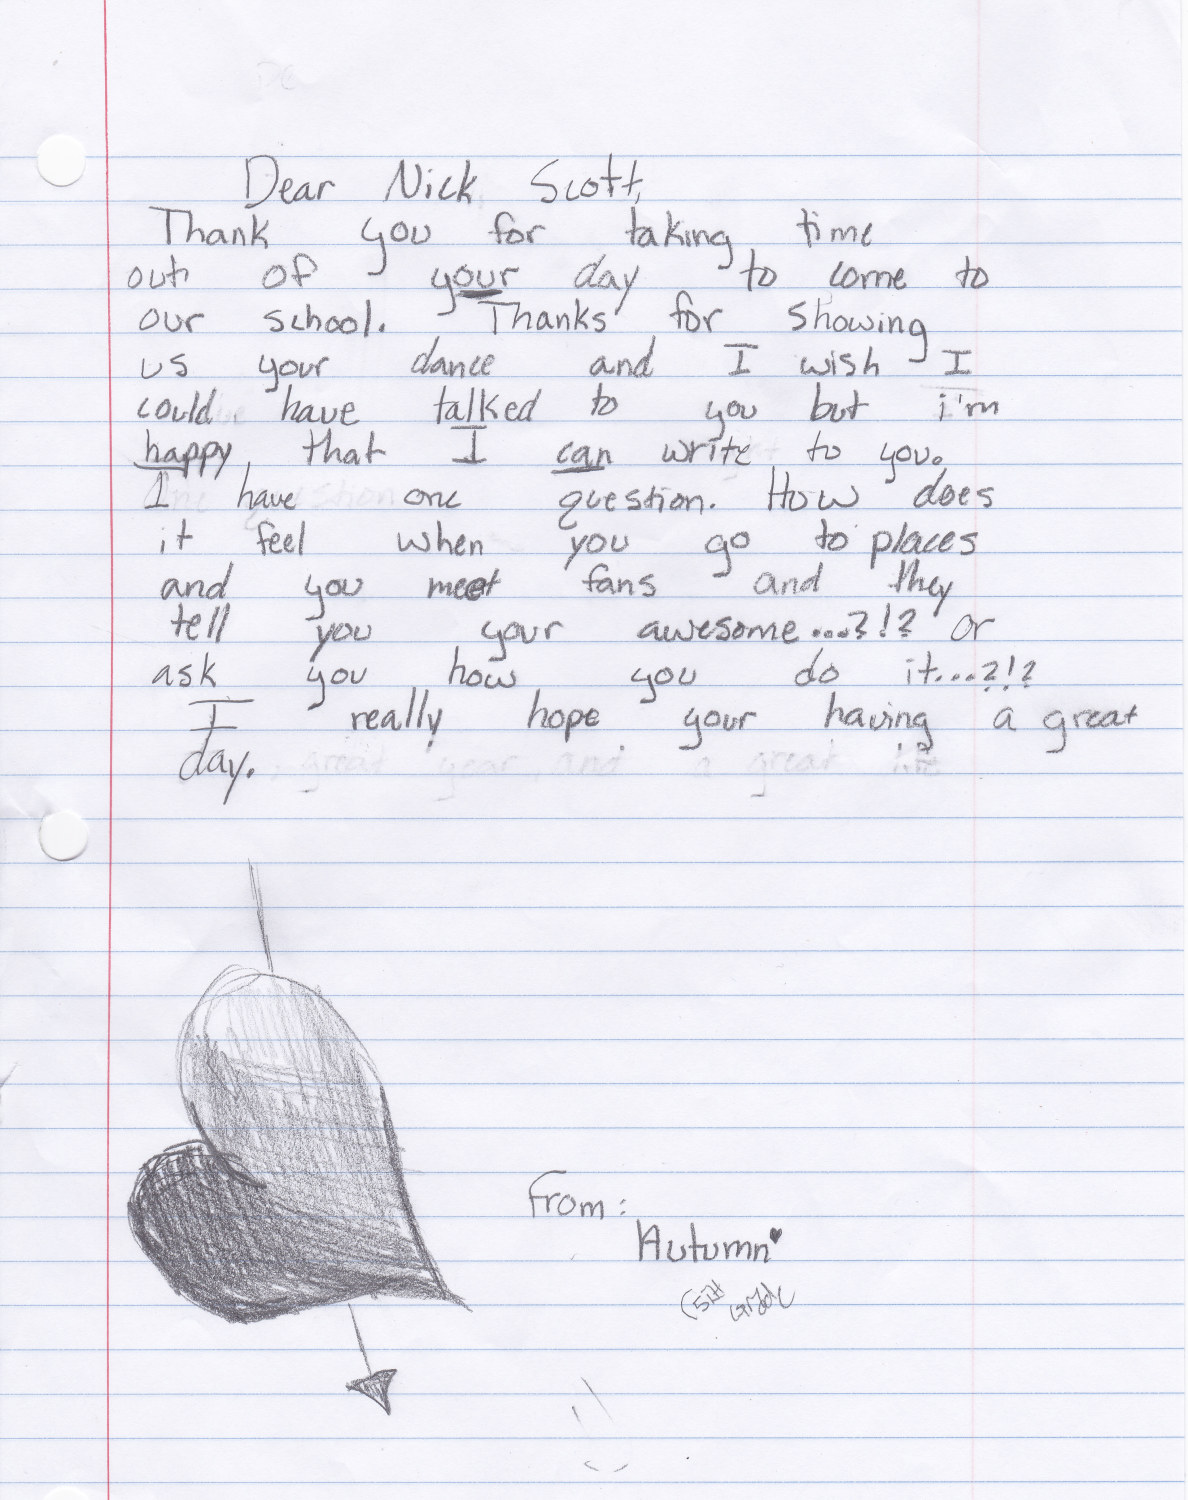 Dear Nick Scott,
Thank you for taking time
out of your day to come to
our school. Thanks for showing
us your dance and I wish I
could have talked to you but i'm
happy that I can write to you.
I have one question. How does
it feel when you go to places
and you meet fans and they
tell you your awesome...?!? or
ask you how you do it...?!?
I really hope your having a great
day. great year and a great life
From:
Autumn
Grade